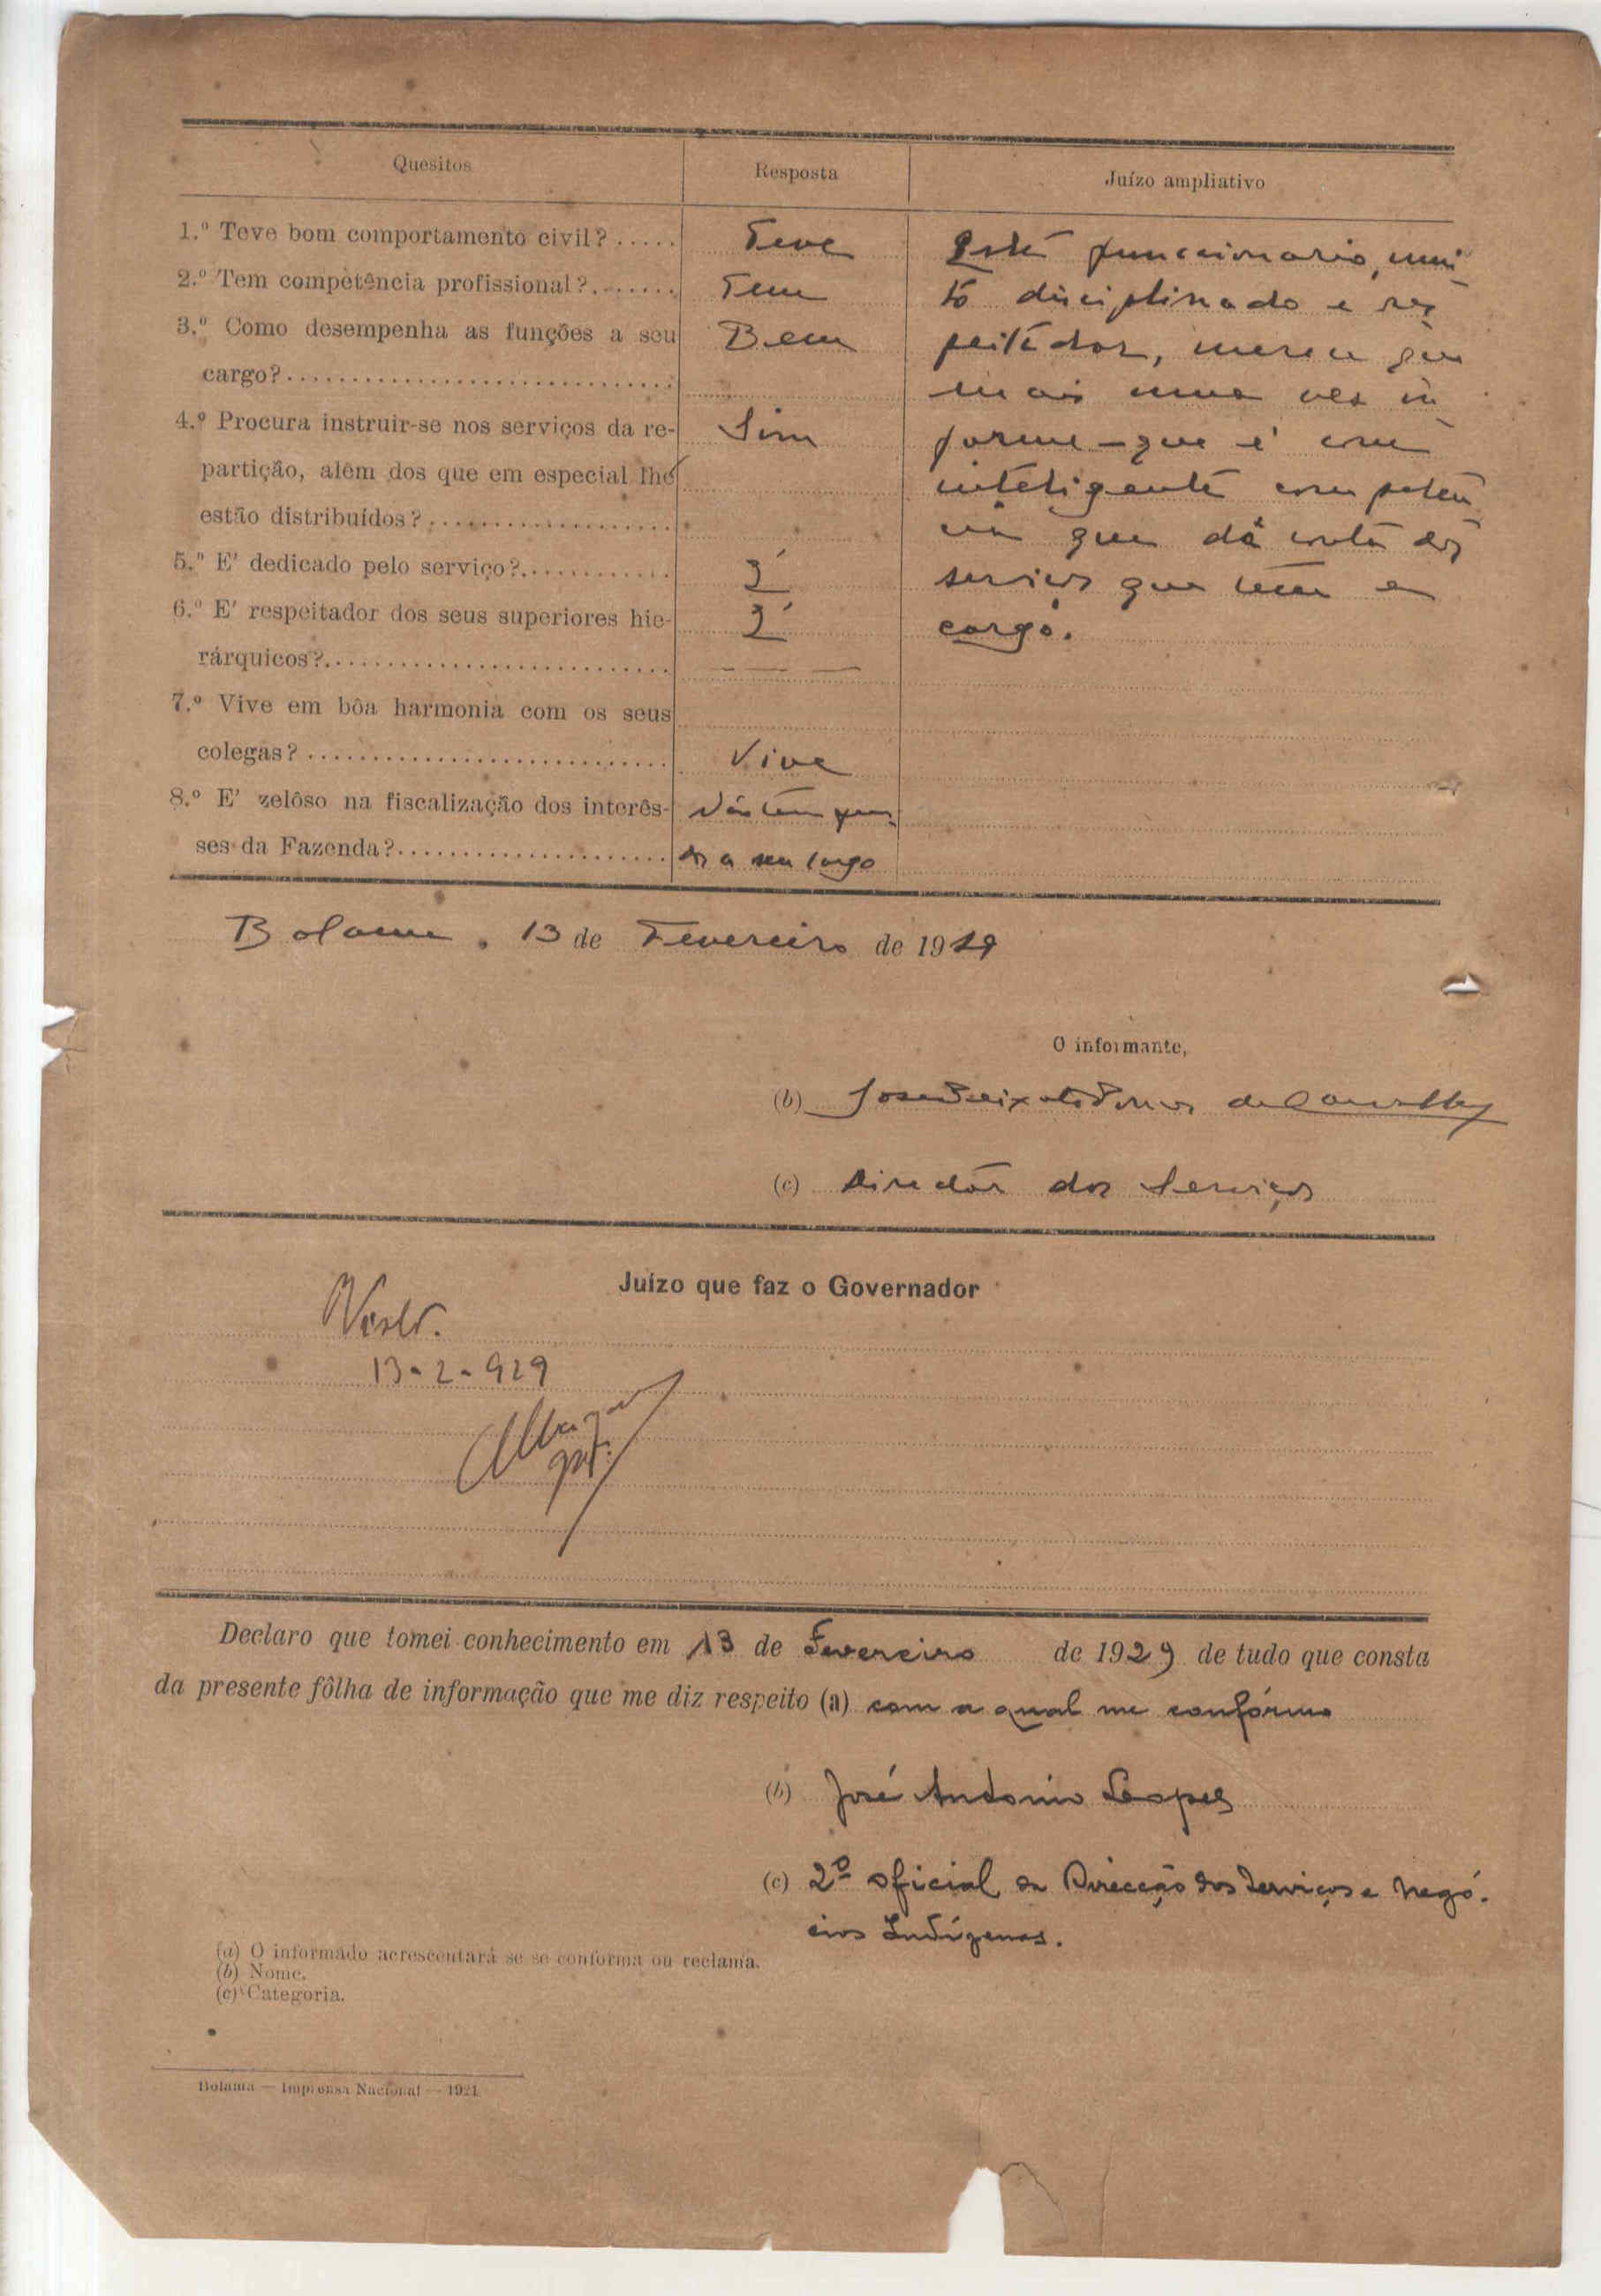 Quesitos
Resposta
Juízo ampliativo
1.º Teve bom comportamento civil? .....
Teve
2.º Tem competência profissional?.......
Tem
3.º Como desempenha as funções a seu
Bem
cargo?..............................
4.º Procura instruir-se nos serviços da re-
Sim
partição, além dos que em especial lhe
estão distribuídos?...................
5.º E' dedicado pelo serviço?............
É
6.º E' respeitador dos seus superiores hie-
É
rárquicos?...........................
7.º Vive em bôa harmonia com os seus
colegas?............................
Vive
8.º E' zelôso na fiscalização dos interês-
Não tem fun
ses da Fazenda?.....................
dos a seu cargo
Este funccionario, mui
to disciplinado e res
peitador, merece que
mais uma vez in
forme - que é com
inteligente competen
cia que dá conta dos
serviços que tem a
cargo.
Bolama, 13 de Fevereiro de 1929
O informante,
(b) José Peixoto de Carvalho
(c) Diretor dos Serviços
Juízo que faz o Governador
Visto.
13-2-929
Declaro que tomei conhecimento em 13 de Fevereiro de 1929 de tudo que consta
da presente fôlha de informação que me diz respeito (a) com a qual me confórmo
(b) José Antonio Lopes
(c) 2º oficial da Direcção dos Serviços e Negó-
cios Indígenas.
(a) O informado acrescentará se se conforma ou reclama.
(b) Nome.
(c) Categoria.
Bolama — Imprensa Nacional — 1921